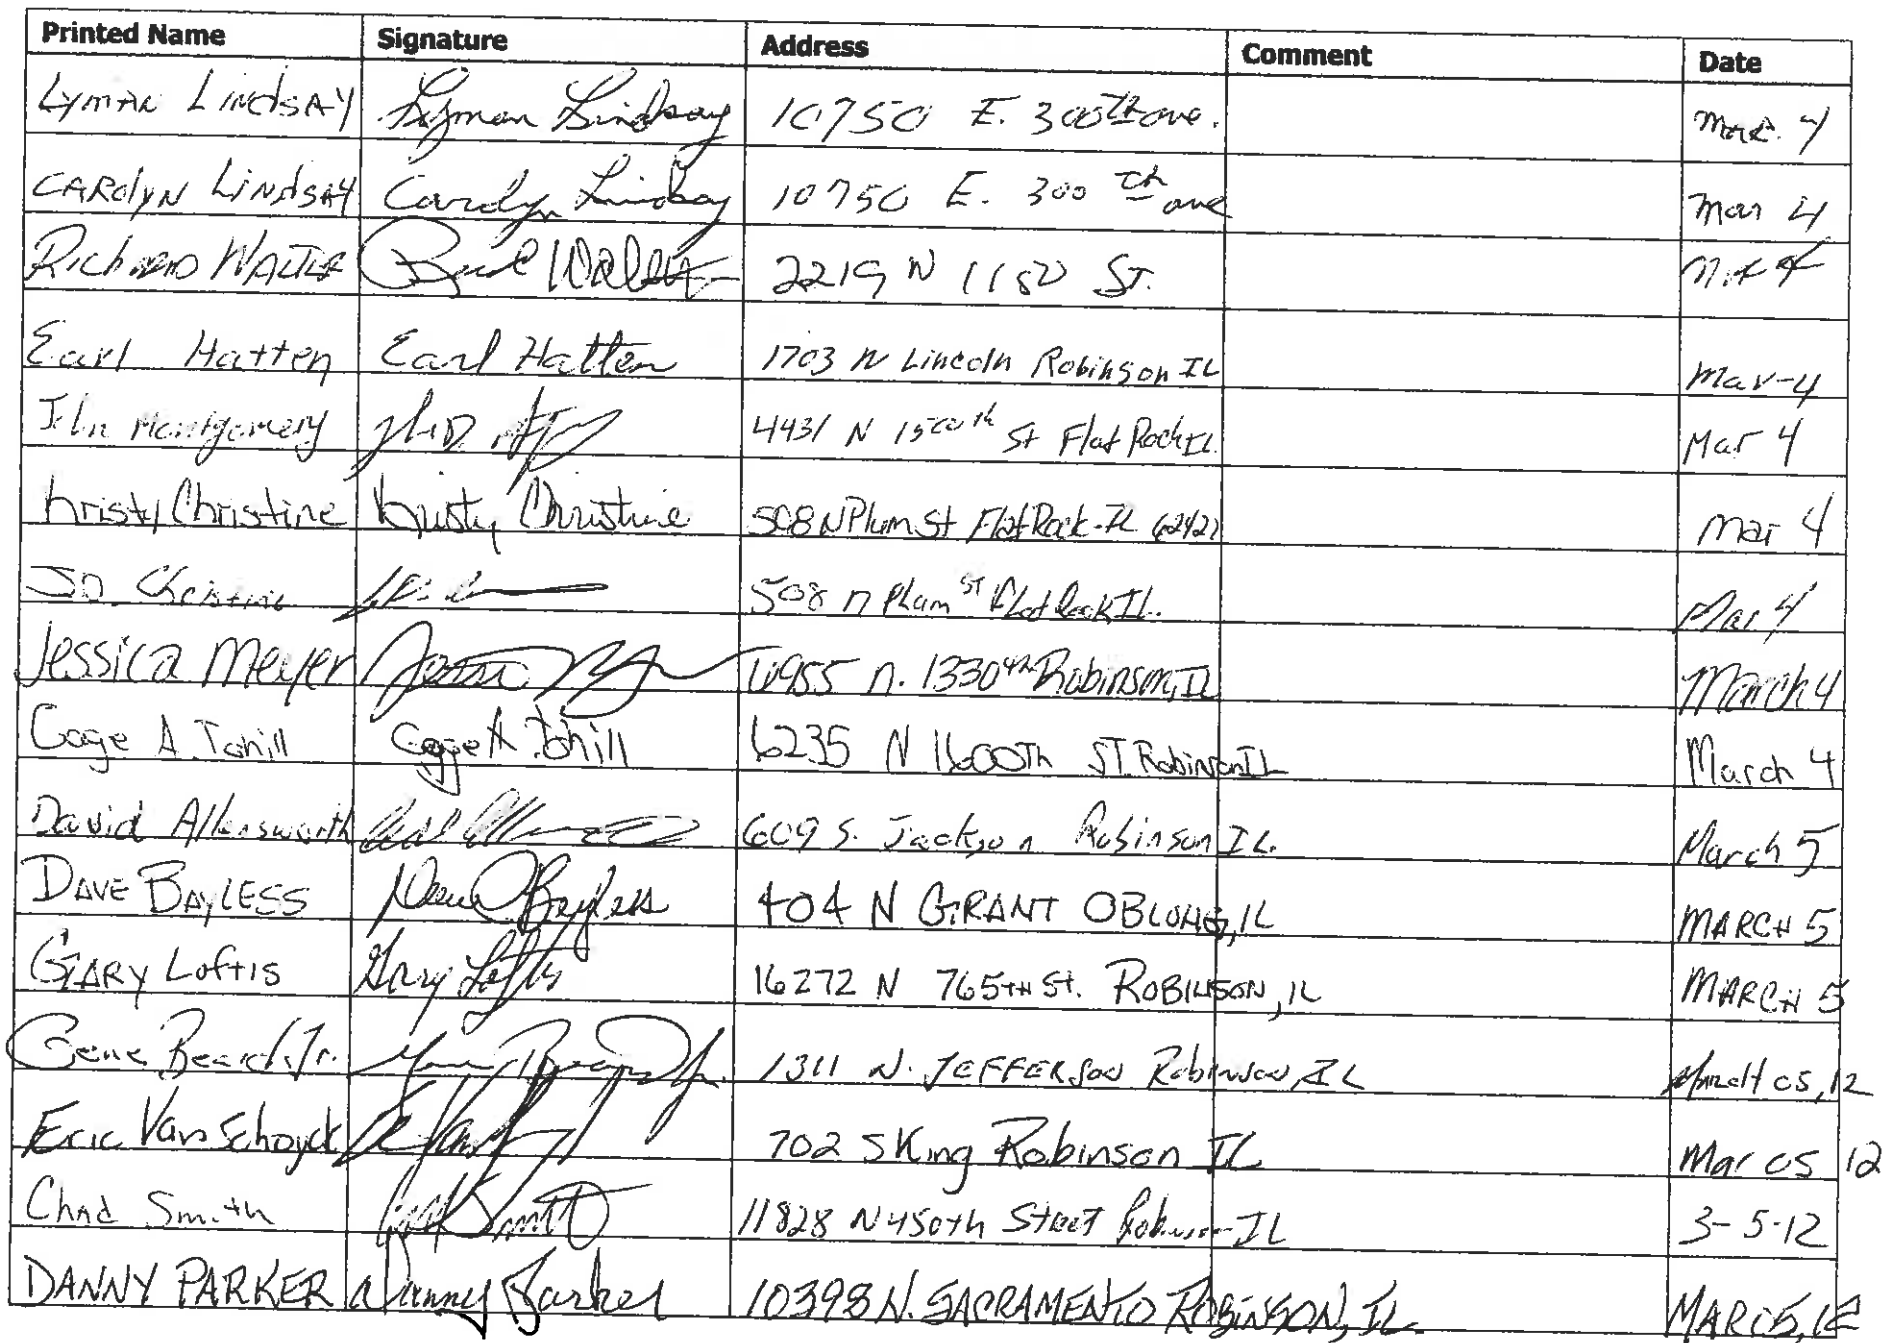 Printed Name Signature Address Comment Date
Lyman Lindsay Lyman Lindsay 10750 E. 300th ave. Mar. 4
Carolyn Lindsay Carolyn Lindsay 10750 E. 300th ave Mar 4
Richard Walter 2219 N 1150 St. 4
Earl Hatten Earl Hatten 1703 N Lincoln Robinson IL Mar-4
John Montgomery 4431 N 1500th St Flat Rock IL. Mar 4
Kristy Christine Kristy Christine 508 N Plum St Flat Rock IL 62427 Mar 4
J.D. Christine 508 N Plum St Flat Rock IL. Mar 4
Jessica Meyer 6955 N. 1330th Robinson, IL March 4
Gage A. Tohill Gage A Tohill 6235 N 1600th ST Robinson IL March 4
David Allensworth 609 S. Jackson Robinson IL. March 5
DAVE BAYLESS Dave Bayless 404 N GRANT OBLONG, IL MARCH 5
GARY LOFTIS Gary Loftis 16272 N 765TH St. ROBINSON, IL MARCH 5
Gene Beard Jr. 1311 N. JEFFERSON Robinson, IL March 05, 12
Eric VanSchoyck 702 S King Robinson IL Mar 05 12
Chad Smith Smith 11828 N 450th Street Robinson IL 3-5-12
DANNY PARKER Danny Parker 10398 N. SACRAMENTO ROBINSON, IL. MAR 05, 12